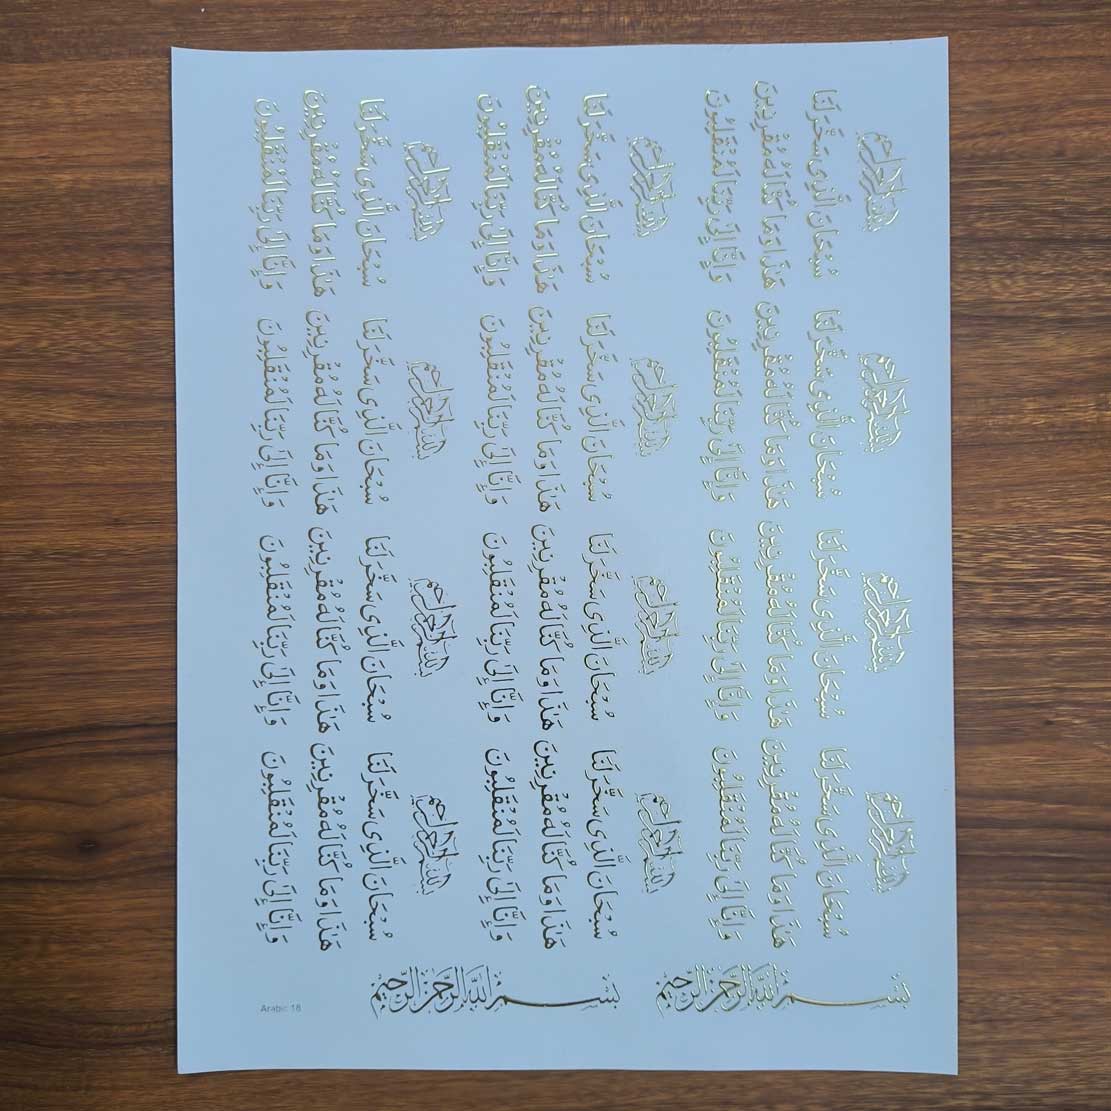 بسم الله الرحمن الرحيم
سُبْحَانَ الَّذِى سَخَّرَ لَنَا
هَٰذَا وَمَا كُنَّا لَهُ مُقْرِنِينَ
وَإِنَّا إِلَىٰ رَبِّنَا لَمُنْقَلِبُونَ
بسم الله الرحمن الرحيم
سُبْحَانَ الَّذِى سَخَّرَ لَنَا
هَٰذَا وَمَا كُنَّا لَهُ مُقْرِنِينَ
وَإِنَّا إِلَىٰ رَبِّنَا لَمُنْقَلِبُونَ
بسم الله الرحمن الرحيم
سُبْحَانَ الَّذِى سَخَّرَ لَنَا
هَٰذَا وَمَا كُنَّا لَهُ مُقْرِنِينَ
وَإِنَّا إِلَىٰ رَبِّنَا لَمُنْقَلِبُونَ
بسم الله الرحمن الرحيم
سُبْحَانَ الَّذِى سَخَّرَ لَنَا
هَٰذَا وَمَا كُنَّا لَهُ مُقْرِنِينَ
وَإِنَّا إِلَىٰ رَبِّنَا لَمُنْقَلِبُونَ
بسم الله الرحمن الرحيم
سُبْحَانَ الَّذِى سَخَّرَ لَنَا
هَٰذَا وَمَا كُنَّا لَهُ مُقْرِنِينَ
وَإِنَّا إِلَىٰ رَبِّنَا لَمُنْقَلِبُونَ
بسم الله الرحمن الرحيم
سُبْحَانَ الَّذِى سَخَّرَ لَنَا
هَٰذَا وَمَا كُنَّا لَهُ مُقْرِنِينَ
وَإِنَّا إِلَىٰ رَبِّنَا لَمُنْقَلِبُونَ
بسم الله الرحمن الرحيم
سُبْحَانَ الَّذِى سَخَّرَ لَنَا
هَٰذَا وَمَا كُنَّا لَهُ مُقْرِنِينَ
وَإِنَّا إِلَىٰ رَبِّنَا لَمُنْقَلِبُونَ
بسم الله الرحمن الرحيم
سُبْحَانَ الَّذِى سَخَّرَ لَنَا
هَٰذَا وَمَا كُنَّا لَهُ مُقْرِنِينَ
وَإِنَّا إِلَىٰ رَبِّنَا لَمُنْقَلِبُونَ
بسم الله الرحمن الرحيم
سُبْحَانَ الَّذِى سَخَّرَ لَنَا
هَٰذَا وَمَا كُنَّا لَهُ مُقْرِنِينَ
وَإِنَّا إِلَىٰ رَبِّنَا لَمُنْقَلِبُونَ
بسم الله الرحمن الرحيم
سُبْحَانَ الَّذِى سَخَّرَ لَنَا
هَٰذَا وَمَا كُنَّا لَهُ مُقْرِنِينَ
وَإِنَّا إِلَىٰ رَبِّنَا لَمُنْقَلِبُونَ
بسم الله الرحمن الرحيم
سُبْحَانَ الَّذِى سَخَّرَ لَنَا
هَٰذَا وَمَا كُنَّا لَهُ مُقْرِنِينَ
وَإِنَّا إِلَىٰ رَبِّنَا لَمُنْقَلِبُونَ
بسم الله الرحمن الرحيم
سُبْحَانَ الَّذِى سَخَّرَ لَنَا
هَٰذَا وَمَا كُنَّا لَهُ مُقْرِنِينَ
وَإِنَّا إِلَىٰ رَبِّنَا لَمُنْقَلِبُونَ
بِسْمِ اللَّهِ الرَّحْمَٰنِ الرَّحِيمِ
بِسْمِ اللَّهِ الرَّحْمَٰنِ الرَّحِيمِ
Arabic 18